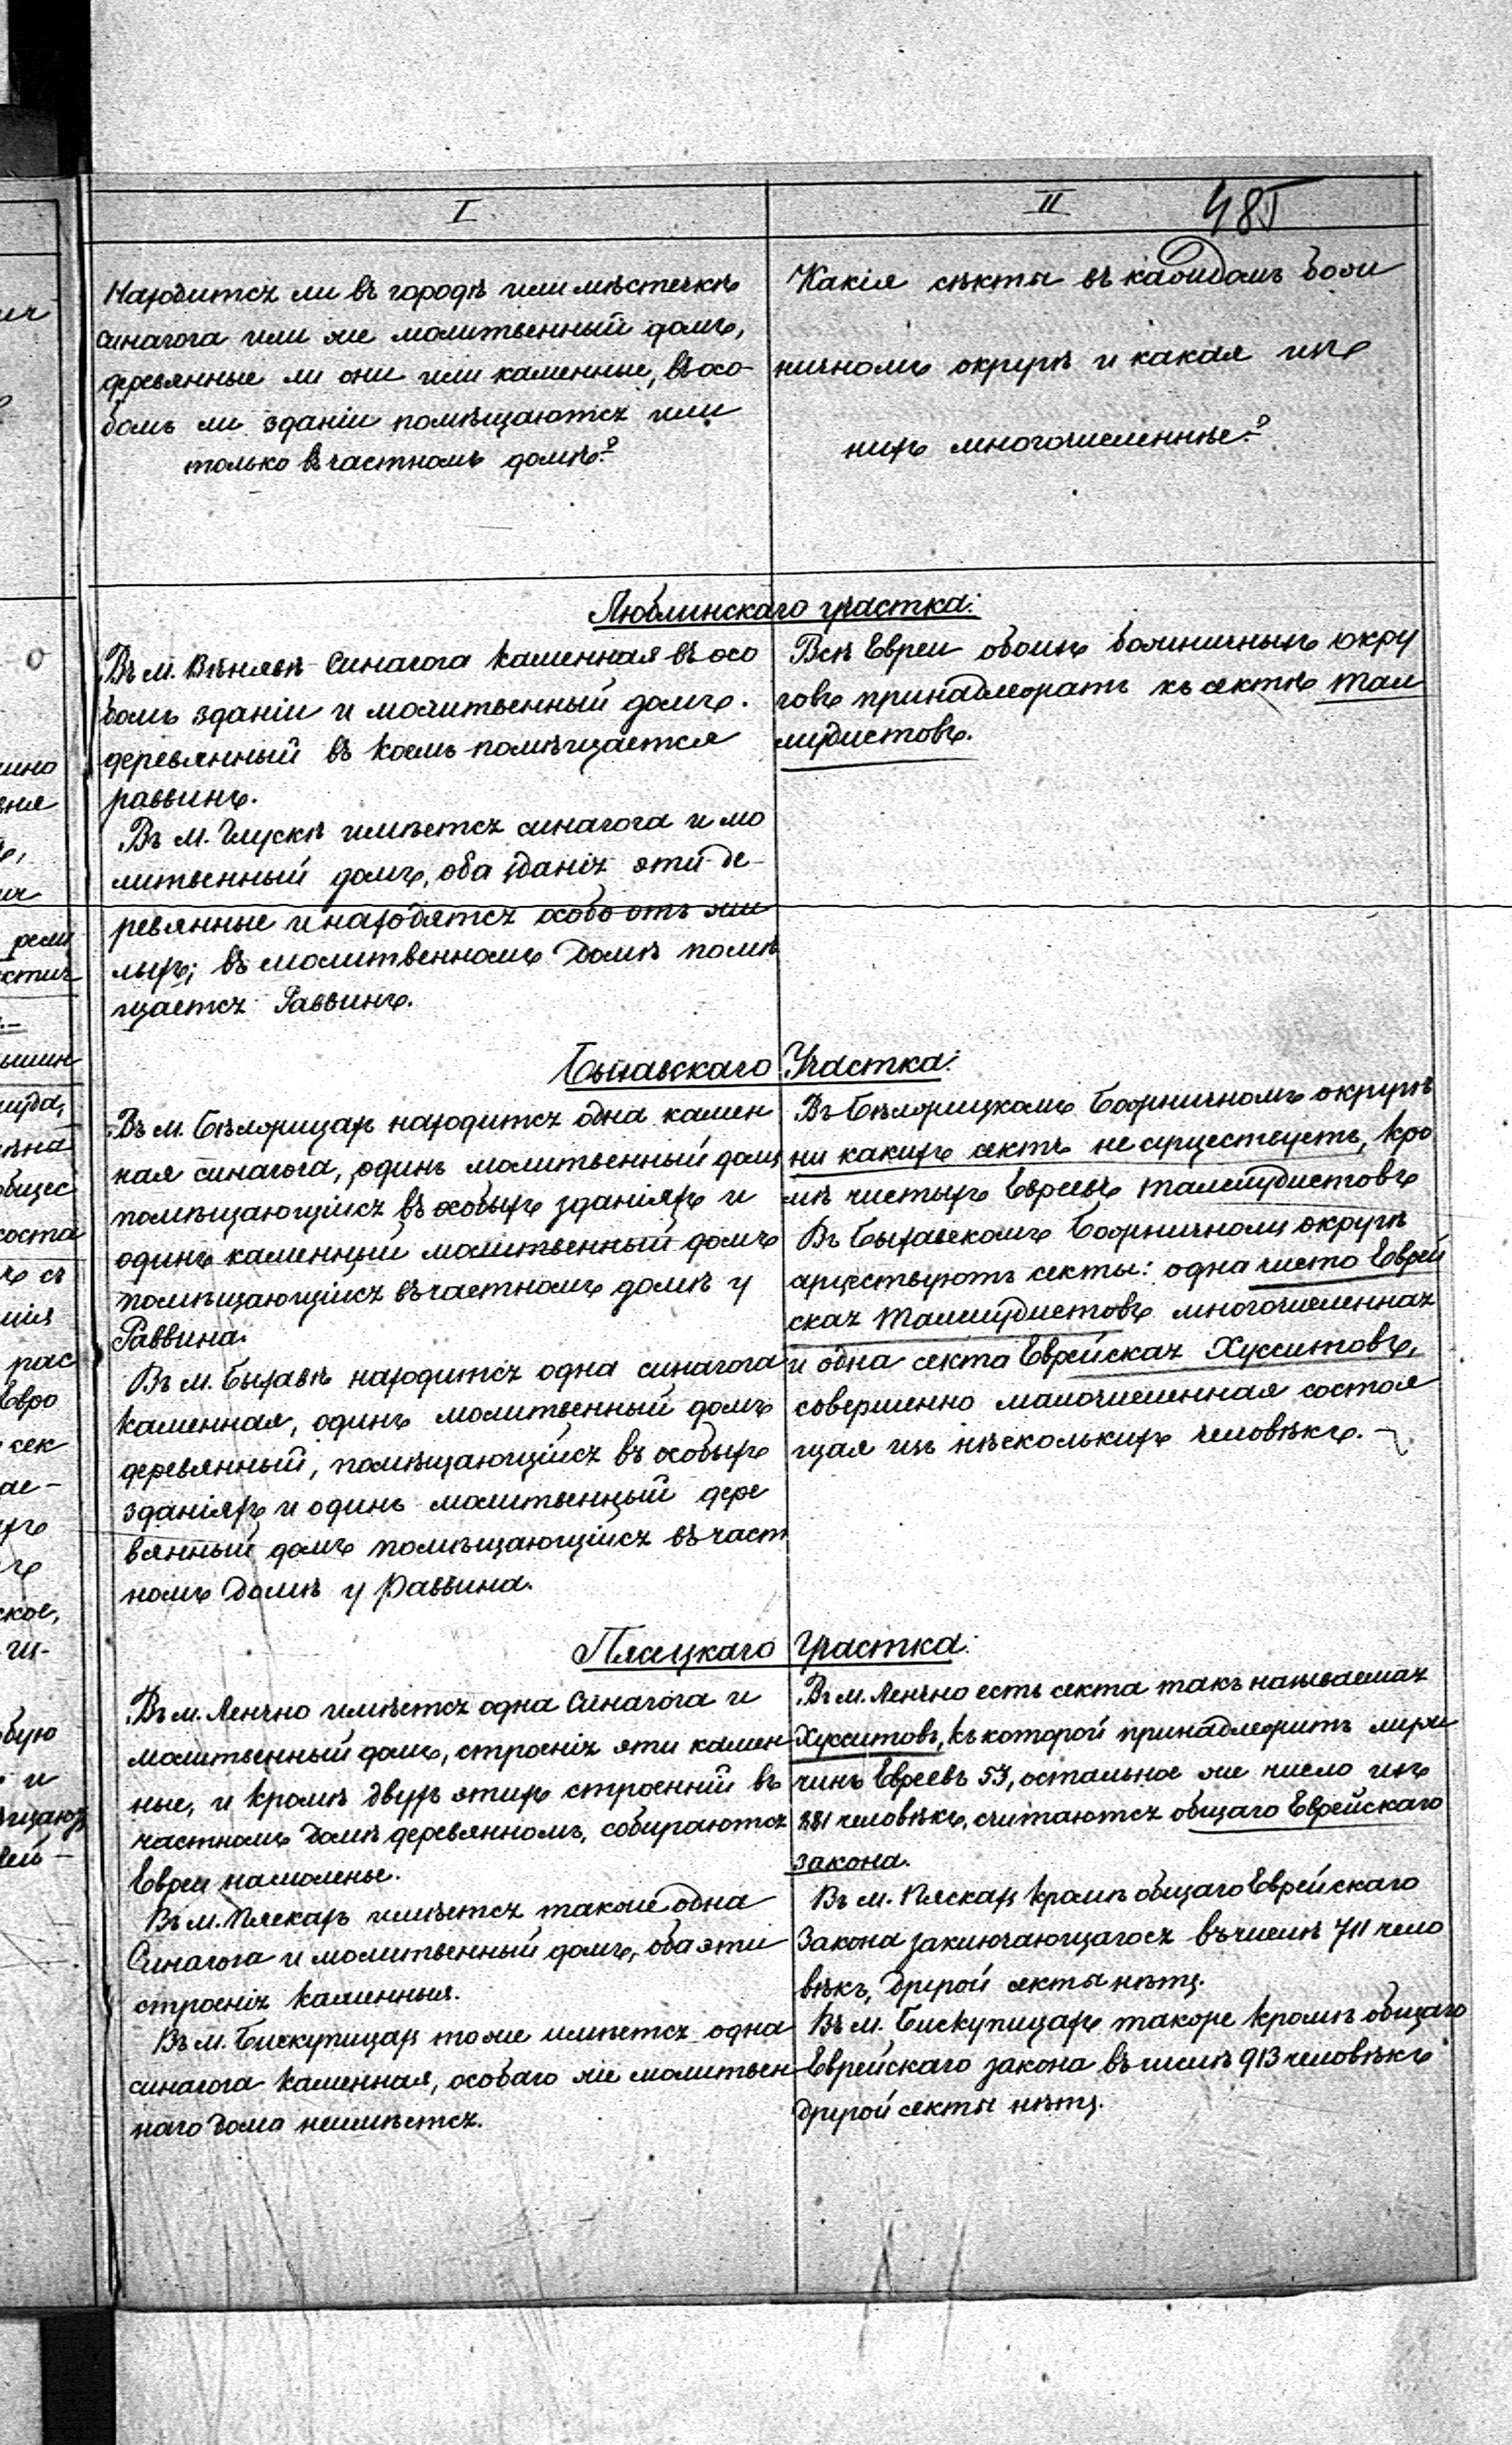 I
II
485
Находится ли въ городѣ или мѣстечкѣ
синагога или же молитвенный домъ,
деревянные ли они или каменные, въ осо-
бомъ ли зданіи помѣщаются или
только въ частномъ домѣ?
Какія секты въ каждомъ бож
ничномъ округѣ и какая изъ
нихъ многочисленнѣе?
Люблинскаго участка:
Въ м. Вѣнявѣ синагога каменная въ осо
бомъ зданіи и молитвенный домъ.
деревянный въ коемъ помѣщается
раввинъ.
Въ м. Глускѣ имѣется синагога и мо
литвенный домъ, оба зданія эти де-
ревянные и находятся особо отъ жи
лыхъ; въ молитвенномъ домѣ помѣ
щается Раввинъ.
Всѣ Евреи обоихъ божничныхъ окру
говъ принадлежатъ къ сектѣ Тал
мудистовъ.
Быхавскаго Участка:
Въ м. Бѣлжицахъ находится одна камен
ная синагога, одинъ молитвенный домъ
помѣщающійся въ особыхъ зданіяхъ и
одинъ каменный молитвенный домъ
помѣщающійся въ частномъ домѣ у
Раввина.
Въ м. Быхавѣ находится одна синагога
каменная, одинъ молитвенный домъ
деревянный, помѣщающійся въ особыхъ
зданіяхъ и одинъ молитвенный дере
вянный домъ помѣщающійся въ част
номъ домѣ у Раввина.
Въ Бѣлжицкомъ Божничномъ округѣ
ни какихъ сектъ не существуетъ, кро
мѣ чистыхъ Евреевъ талмудистовъ
Въ Быхавскомъ Божничномъ округѣ
существуютъ секты: одна чисто Еврей
ская Талмудистовъ многочисленная
и одна секта Еврейская Хусситовъ,
совершенно малочисленная состоя
щая изъ нѣсколькихъ человѣкъ.
Пясецкаго Участка:
Въ м. Ленчно имѣется одна Синагога и
молитвенный домъ, строенія эти камен
ные, и кромѣ двухъ этихъ строеній въ
частномъ домѣ деревянномъ, собираются
Евреи на моленье.
Въ м. Пяскахъ имѣется также одна
Синагога и молитвенный домъ, оба эти
строенія каменныя.
Въ м. Бискупицахъ тоже имѣется одна
синагога каменная, особаго же молитвен
наго дома неимѣется.
Въ м. Ленчно есть секта такъ называемая
Хусситовъ, къ которой принадлежитъ мужч
чинъ Евреевъ 53, остальное же число ихъ
881 человѣкъ, считаются общаго Еврейскаго
закона.
Въ м. Пяскахъ кромѣ общаго Еврейскаго
Закона заключающагося въ числѣ 711 чело
вѣкъ, другой секты нѣтъ.
Въ м. Бискупицахъ также кромѣ общаго
Еврейскаго закона въ числѣ 913 человѣкъ
другой секты нѣтъ.